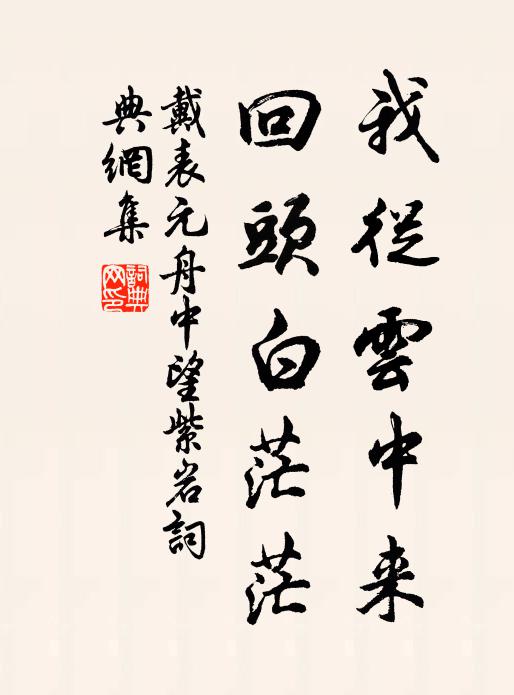 我從雲中来
回頭白茫茫
戴表元舟中望紫岩詞
典網集
詞典网印